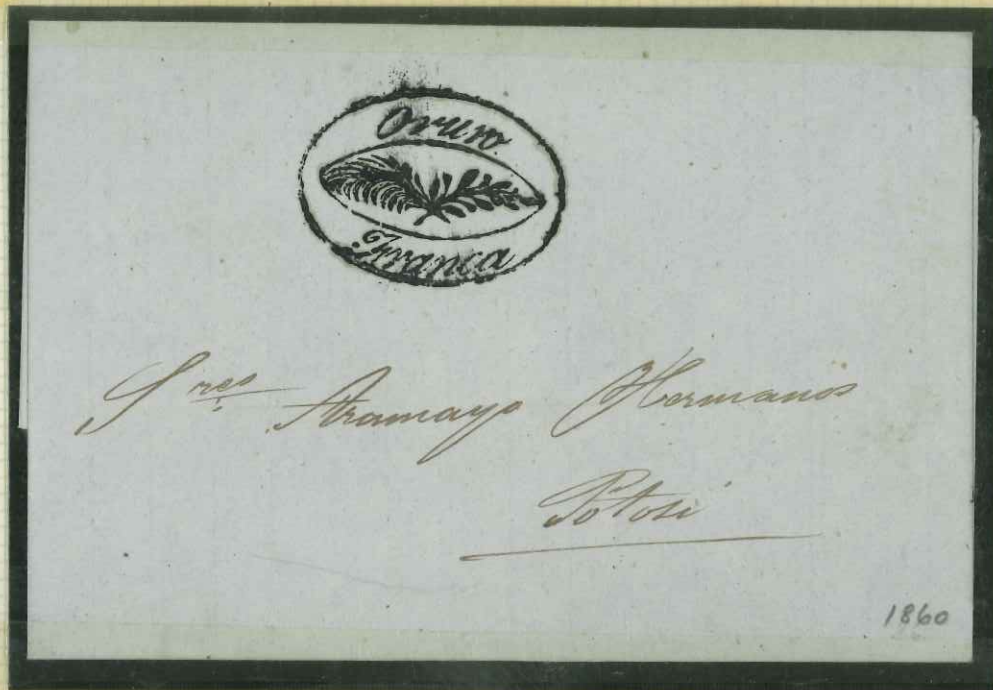 Oruro
Franca
Sres Aramayo Hermanos
Potosi
1860